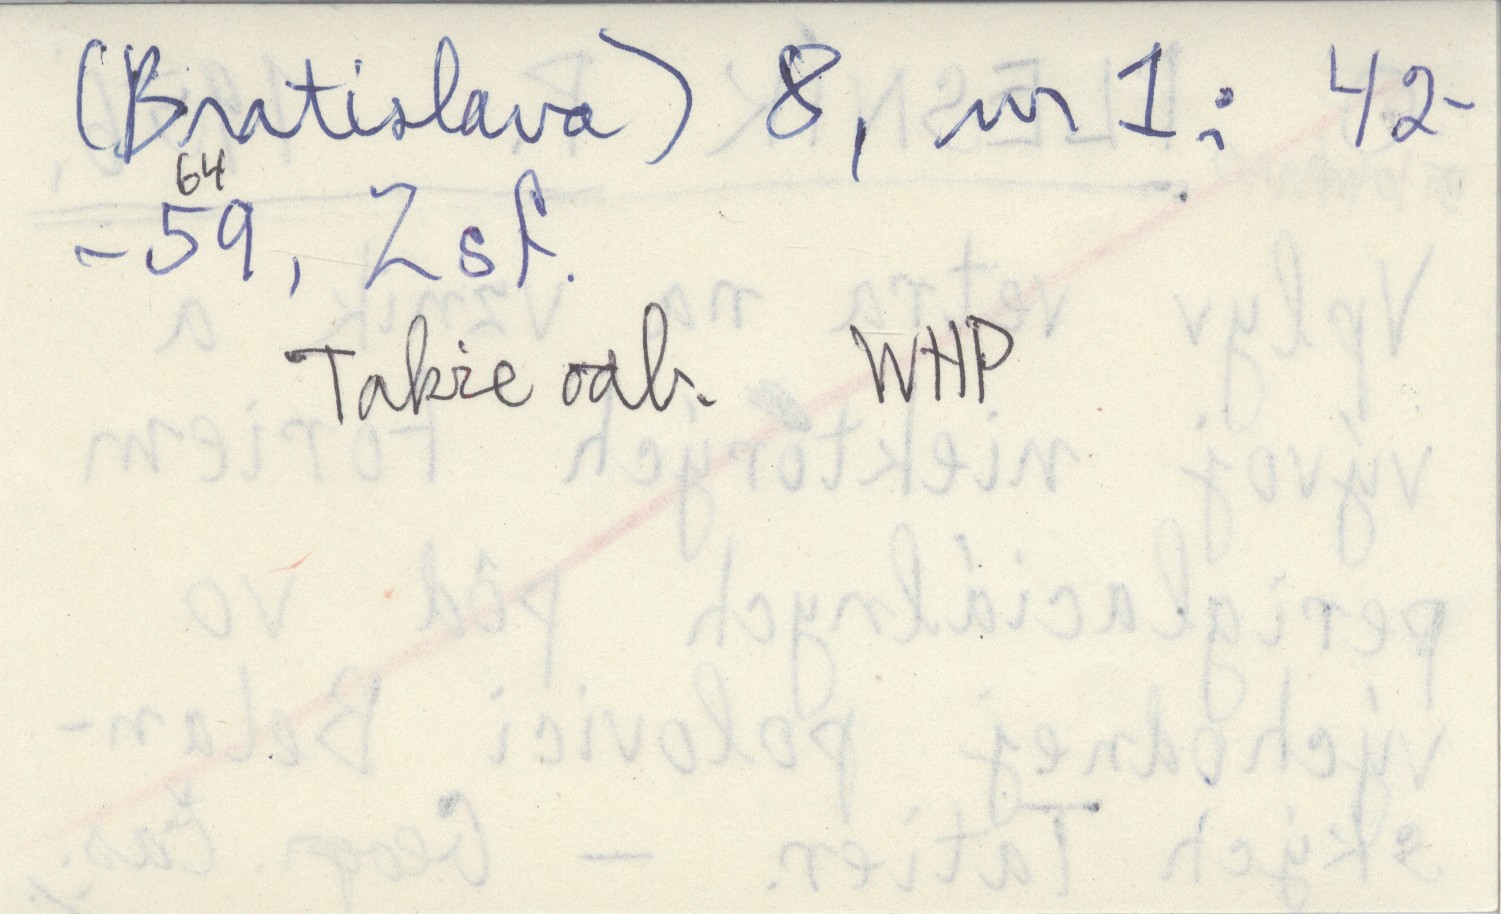 (Bratislava) 8, nr 1: 42-
64
-59, Z sf.
Także odb. WHP